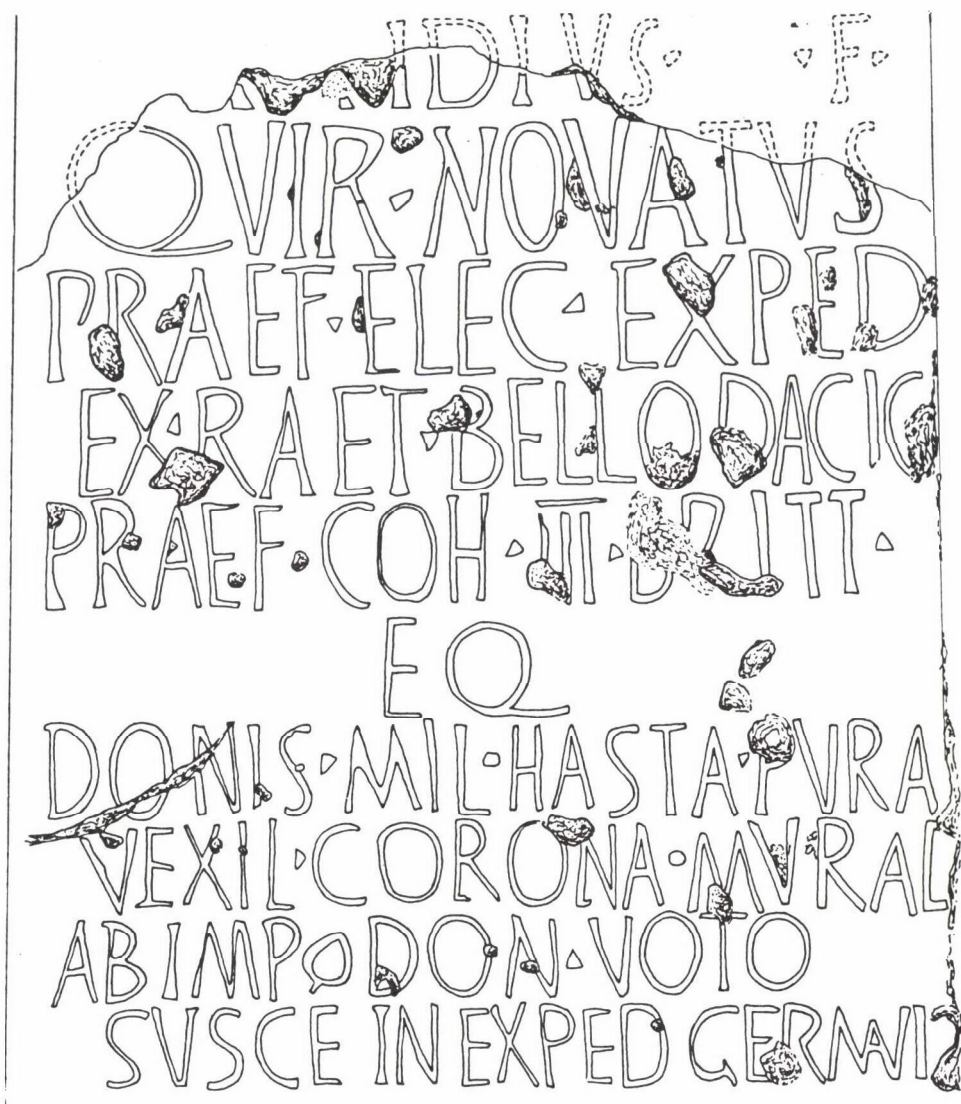 IDIVS · F ·
QVIR · NOVATVS
PRAEF · ELEC · EXPED
EX · RA ET · BELLO DACIC
PRAEF · COH · III · BRITT ·
EQ
DONIS · MIL · HASTA · PVRA
VEXIL · CORONA · MVRAL
AB IMP Q DON · VOTO
SVSCE IN EXPED GERMANIC